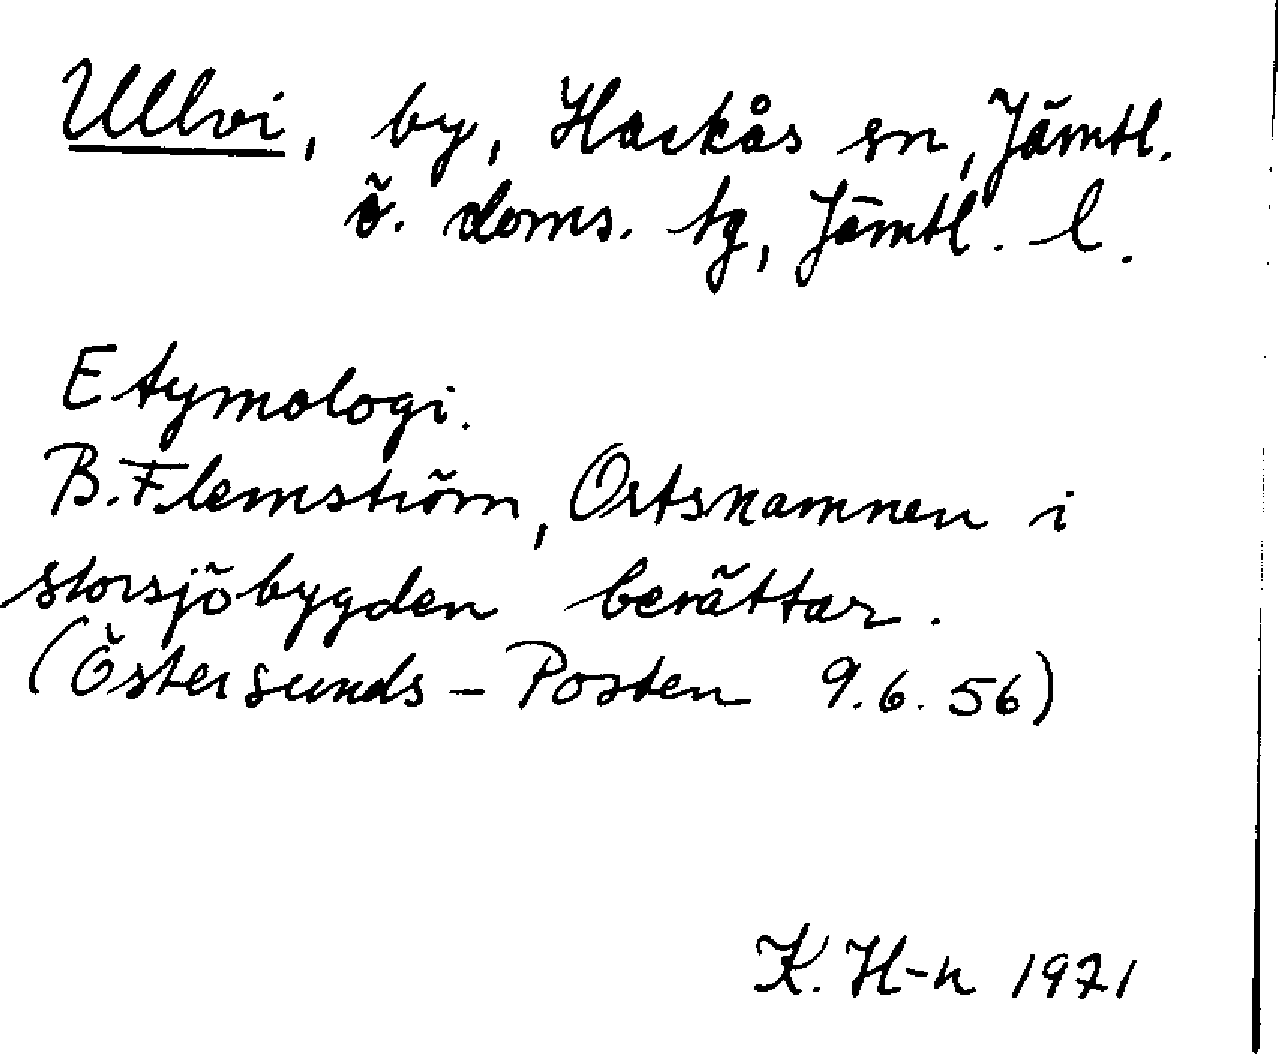 Ullvi, by, Hackås sn, Jämtl.
ö. doms. tg, Jämtl. l.
Etymologi.
B. Flemström, Ortsnamnen i
storsjöbygden berättar.
(Östersunds-Posten 9.6.56)
K. H-n 1971